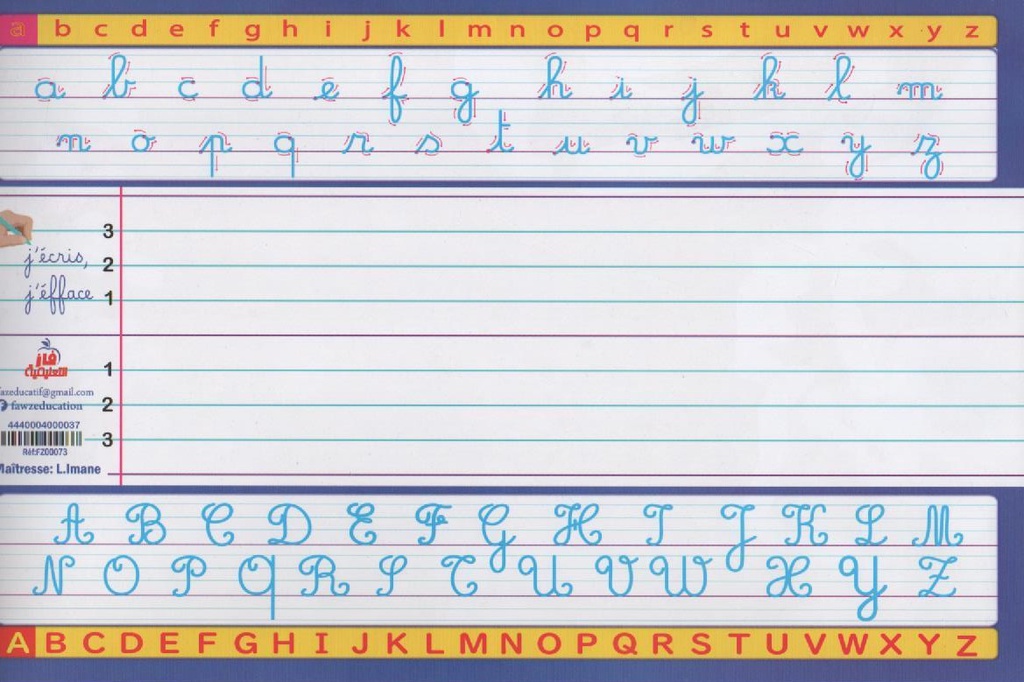 a b c d e f g h i j k l m n o p q r s t u v w x y z
a b c d e f g h i j k l m
n o p q r s t u v w x y z
3
j'écris, 2
j'éfface 1
فاز
التعليمية
1
azeducatif@gmail.com
fawzeducation 2
4440004000037
3
Réf:FZ00073
Maîtresse: L.Imane
A B C D E F G H I J K L M
N O P Q R S T U V W X Y Z
A B C D E F G H I J K L M N O P Q R S T U V W X Y Z